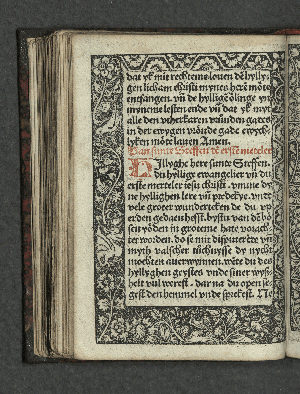 dat yk mit rechteme louen dē hylly⸗
gen licham christi mynes herē mote
entfangen. vñ de hyllige ōlinge yn
myneme lesten ende vñ dat yk myt
alle den vtherkaren vrunden gades
in der ewygen vrōude gade ewych⸗
lyken mote lauen Amen.
Van sunte Steffen dē erstē merteler
Hillyghe here sunte Steffen
du hyllige ewangelier vñ du
erste merteler iesu christi. vmme dy⸗
ne hyllighen lere vñ predekye. vnde
vele groter wunderteken de du vp
erden gedaen hest. bystu van dē bō⸗
sen yōden in groteme hate vorach⸗
tet worden. do se mit disputerēde vñ
myth valscher tuchnysse dy nycht
mochten auerwynnen. wēte du des
hyllyghen geystes vnde siner wys⸗
heit vul werest. dar na du open se⸗
gest den hemmel vnde sprekest. Ne